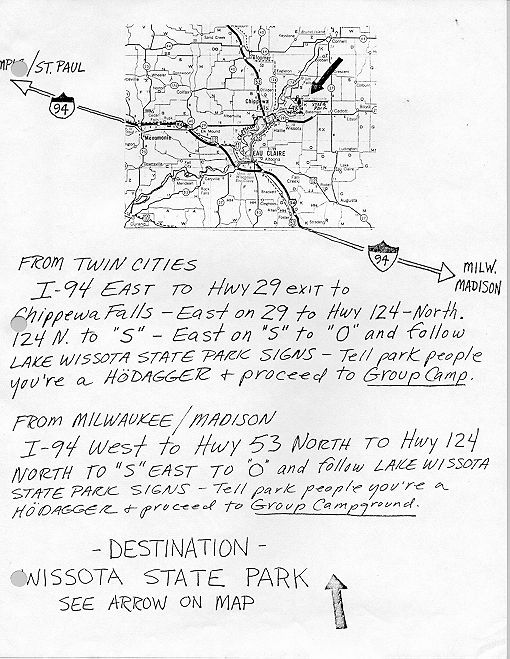 /ST. PAUL
94
Cornell
Chippewa
Menomonie
EAU CLAIRE
Altoona
Augusta
Durand
94
MILW.
MADISON
FROM TWIN CITIES
I-94 EAST TO HWY 29 EXIT to
Chippewa Falls - East on 29 to Hwy 124-North.
124 N. to "S" - East on "S" to "O" and follow
LAKE WISSOTA STATE PARK SIGNS - Tell park people
you're a HÖDAGGER + proceed to Group Camp.
FROM MILWAUKEE/MADISON
I-94 West to Hwy 53 NORTH TO Hwy 124
NORTH TO "S" EAST TO "O" and follow LAKE WISSOTA
STATE PARK SIGNS - Tell park people you're a
HÖDAGGER + proceed to Group Campground.
- DESTINATION -
WISSOTA STATE PARK
SEE ARROW ON MAP